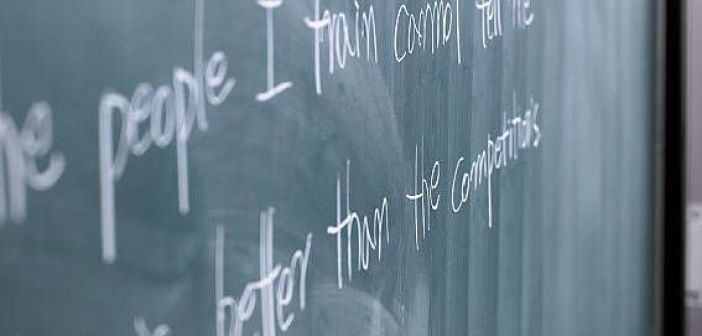 the people I train cannot tell me
better than the competitors